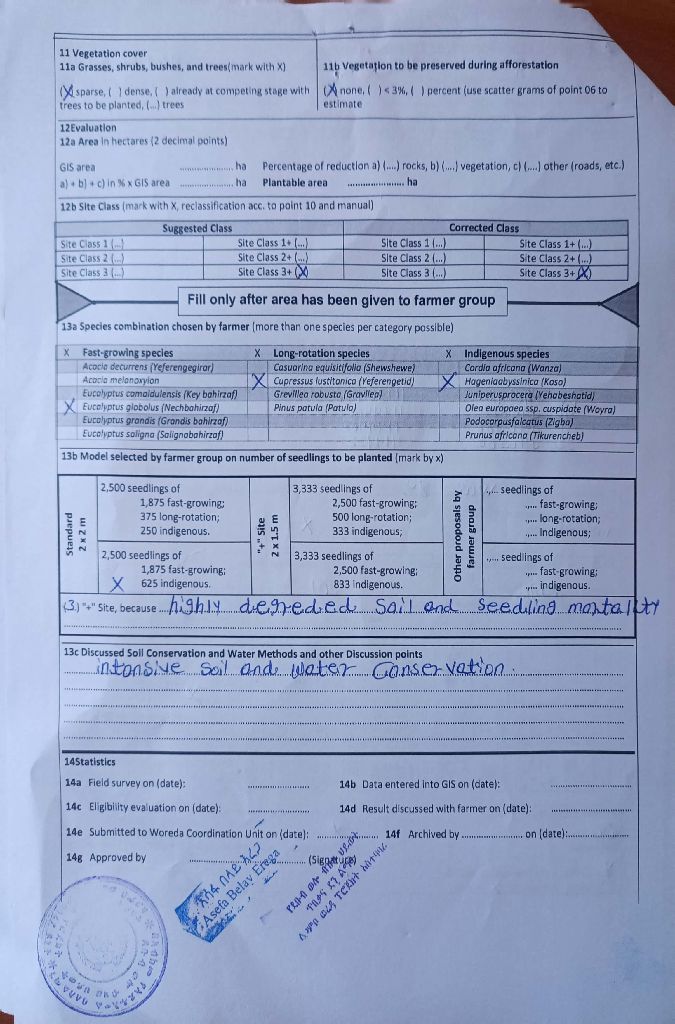 11 Vegetation cover
11a Grasses, shrubs, bushes, and trees(mark with X)
11b Vegetation to be preserved during afforestation
(X) sparse, ( ) dense, ( ) already at competing stage with
trees to be planted, (...) trees
(X) none, ( ) < 3%, ( ) percent (use scatter grams of point 06 to
estimate
12Evaluation
12a Area in hectares (2 decimal points)
GIS area .................. ha Percentage of reduction a) (....) rocks, b) (....) vegetation, c) (....) other (roads, etc.)
a) + b) + c) in % x GIS area .................. ha Plantable area .................. ha
12b Site Class (mark with X, reclassification acc. to point 10 and manual)
Suggested Class Corrected Class
Site Class 1 (...) Site Class 1+ (...) Site Class 1 (...) Site Class 1+ (...)
Site Class 2 (...) Site Class 2+ (...) Site Class 2 (...) Site Class 2+ (...)
Site Class 3 (...) Site Class 3+ (X) Site Class 3 (...) Site Class 3+ (X)
Fill only after area has been given to farmer group
13a Species combination chosen by farmer (more than one species per category possible)
X Fast-growing species X Long-rotation species X Indigenous species
Acacia decurrens (Yeferengegirar) Casuarina equisitifolia (Shewshewe) Cordia africana (Wanza)
Acacia melanoxylon X Cupressus lustitanica (Yeferengetid) X Hageniaabyssinica (Koso)
Eucalyptus camaldulensis (Key bahirzaf) Grevillea robusta (Gravilea) Juniperusprocera (Yehabeshatid)
X Eucalyptus globolus (Nechbahirzaf) Pinus patula (Patula) Olea europaea ssp. cuspidate (Woyra)
Eucalyptus grandis (Grandis bahirzaf) Podocarpusfalcatus (Zigba)
Eucalyptus saligna (Salignabahirzaf) Prunus africana (Tikurencheb)
13b Model selected by farmer group on number of seedlings to be planted (mark by x)
Standard
2 x 2 m
2,500 seedlings of
1,875 fast-growing;
375 long-rotation;
250 indigenous.
2,500 seedlings of
1,875 fast-growing;
X 625 indigenous.
"+" Site
2 x 1.5 m
3,333 seedlings of
2,500 fast-growing;
500 long-rotation;
333 indigenous;
3,333 seedlings of
2,500 fast-growing;
833 indigenous.
Other proposals by
farmer group
.,... seedlings of
.,... fast-growing;
.,... long-rotation;
.,... indigenous;
.,... seedlings of
.,... fast-growing;
.,... indigenous.
(3) "+" Site, because ... highly degreded Soil and Seedling mortality
13c Discussed Soil Conservation and Water Methods and other Discussion points
intansive Soil and Water Conservation.
14Statistics
14a Field survey on (date): ..................
14b Data entered into GIS on (date): ..................
14c Eligibility evaluation on (date): ..................
14d Result discussed with farmer on (date): ..................
14e Submitted to Woreda Coordination Unit on (date): ..................
14f Archived by .................. on (date):..................
14g Approved by .................. (Signature)
አሰፋ በላይ እሬጋ
Asefa Belay Erega